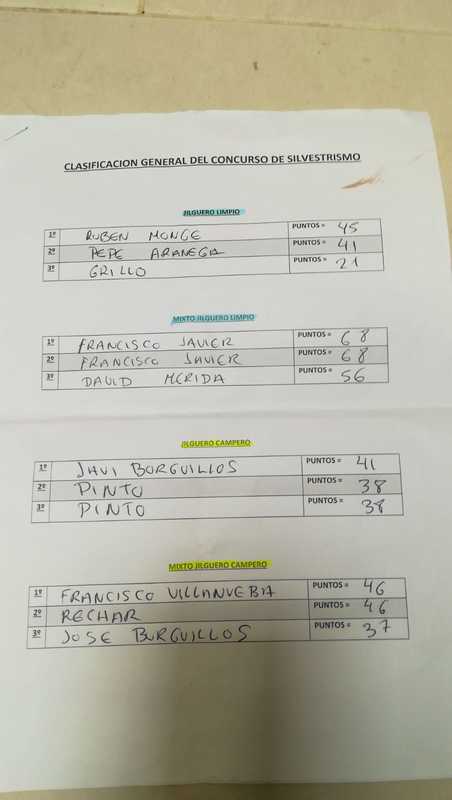 CLASIFICACION GENERAL DEL CONCURSO DE SILVESTRISMO
JILGUERO LIMPIO
1º RUBEN MONGE PUNTOS = 45
2º PEPE ARANEGA PUNTOS = 41
3º GRILLO PUNTOS = 21
MIXTO JILGUERO LIMPIO
1º FRANCISCO JAVIER PUNTOS = 68
2º FRANCISCO JAVIER PUNTOS = 68
3º DAVID MERIDA PUNTOS = 56
JILGUERO CAMPERO
1º JAVI BORGUILLOS PUNTOS = 41
2º PINTO PUNTOS = 38
3º PINTO PUNTOS = 38
MIXTO JILGUERO CAMPERO
1º FRANCISCO VILLANUEBA PUNTOS = 46
2º RECHAR PUNTOS = 46
3º JOSE BURGUILLOS PUNTOS = 37